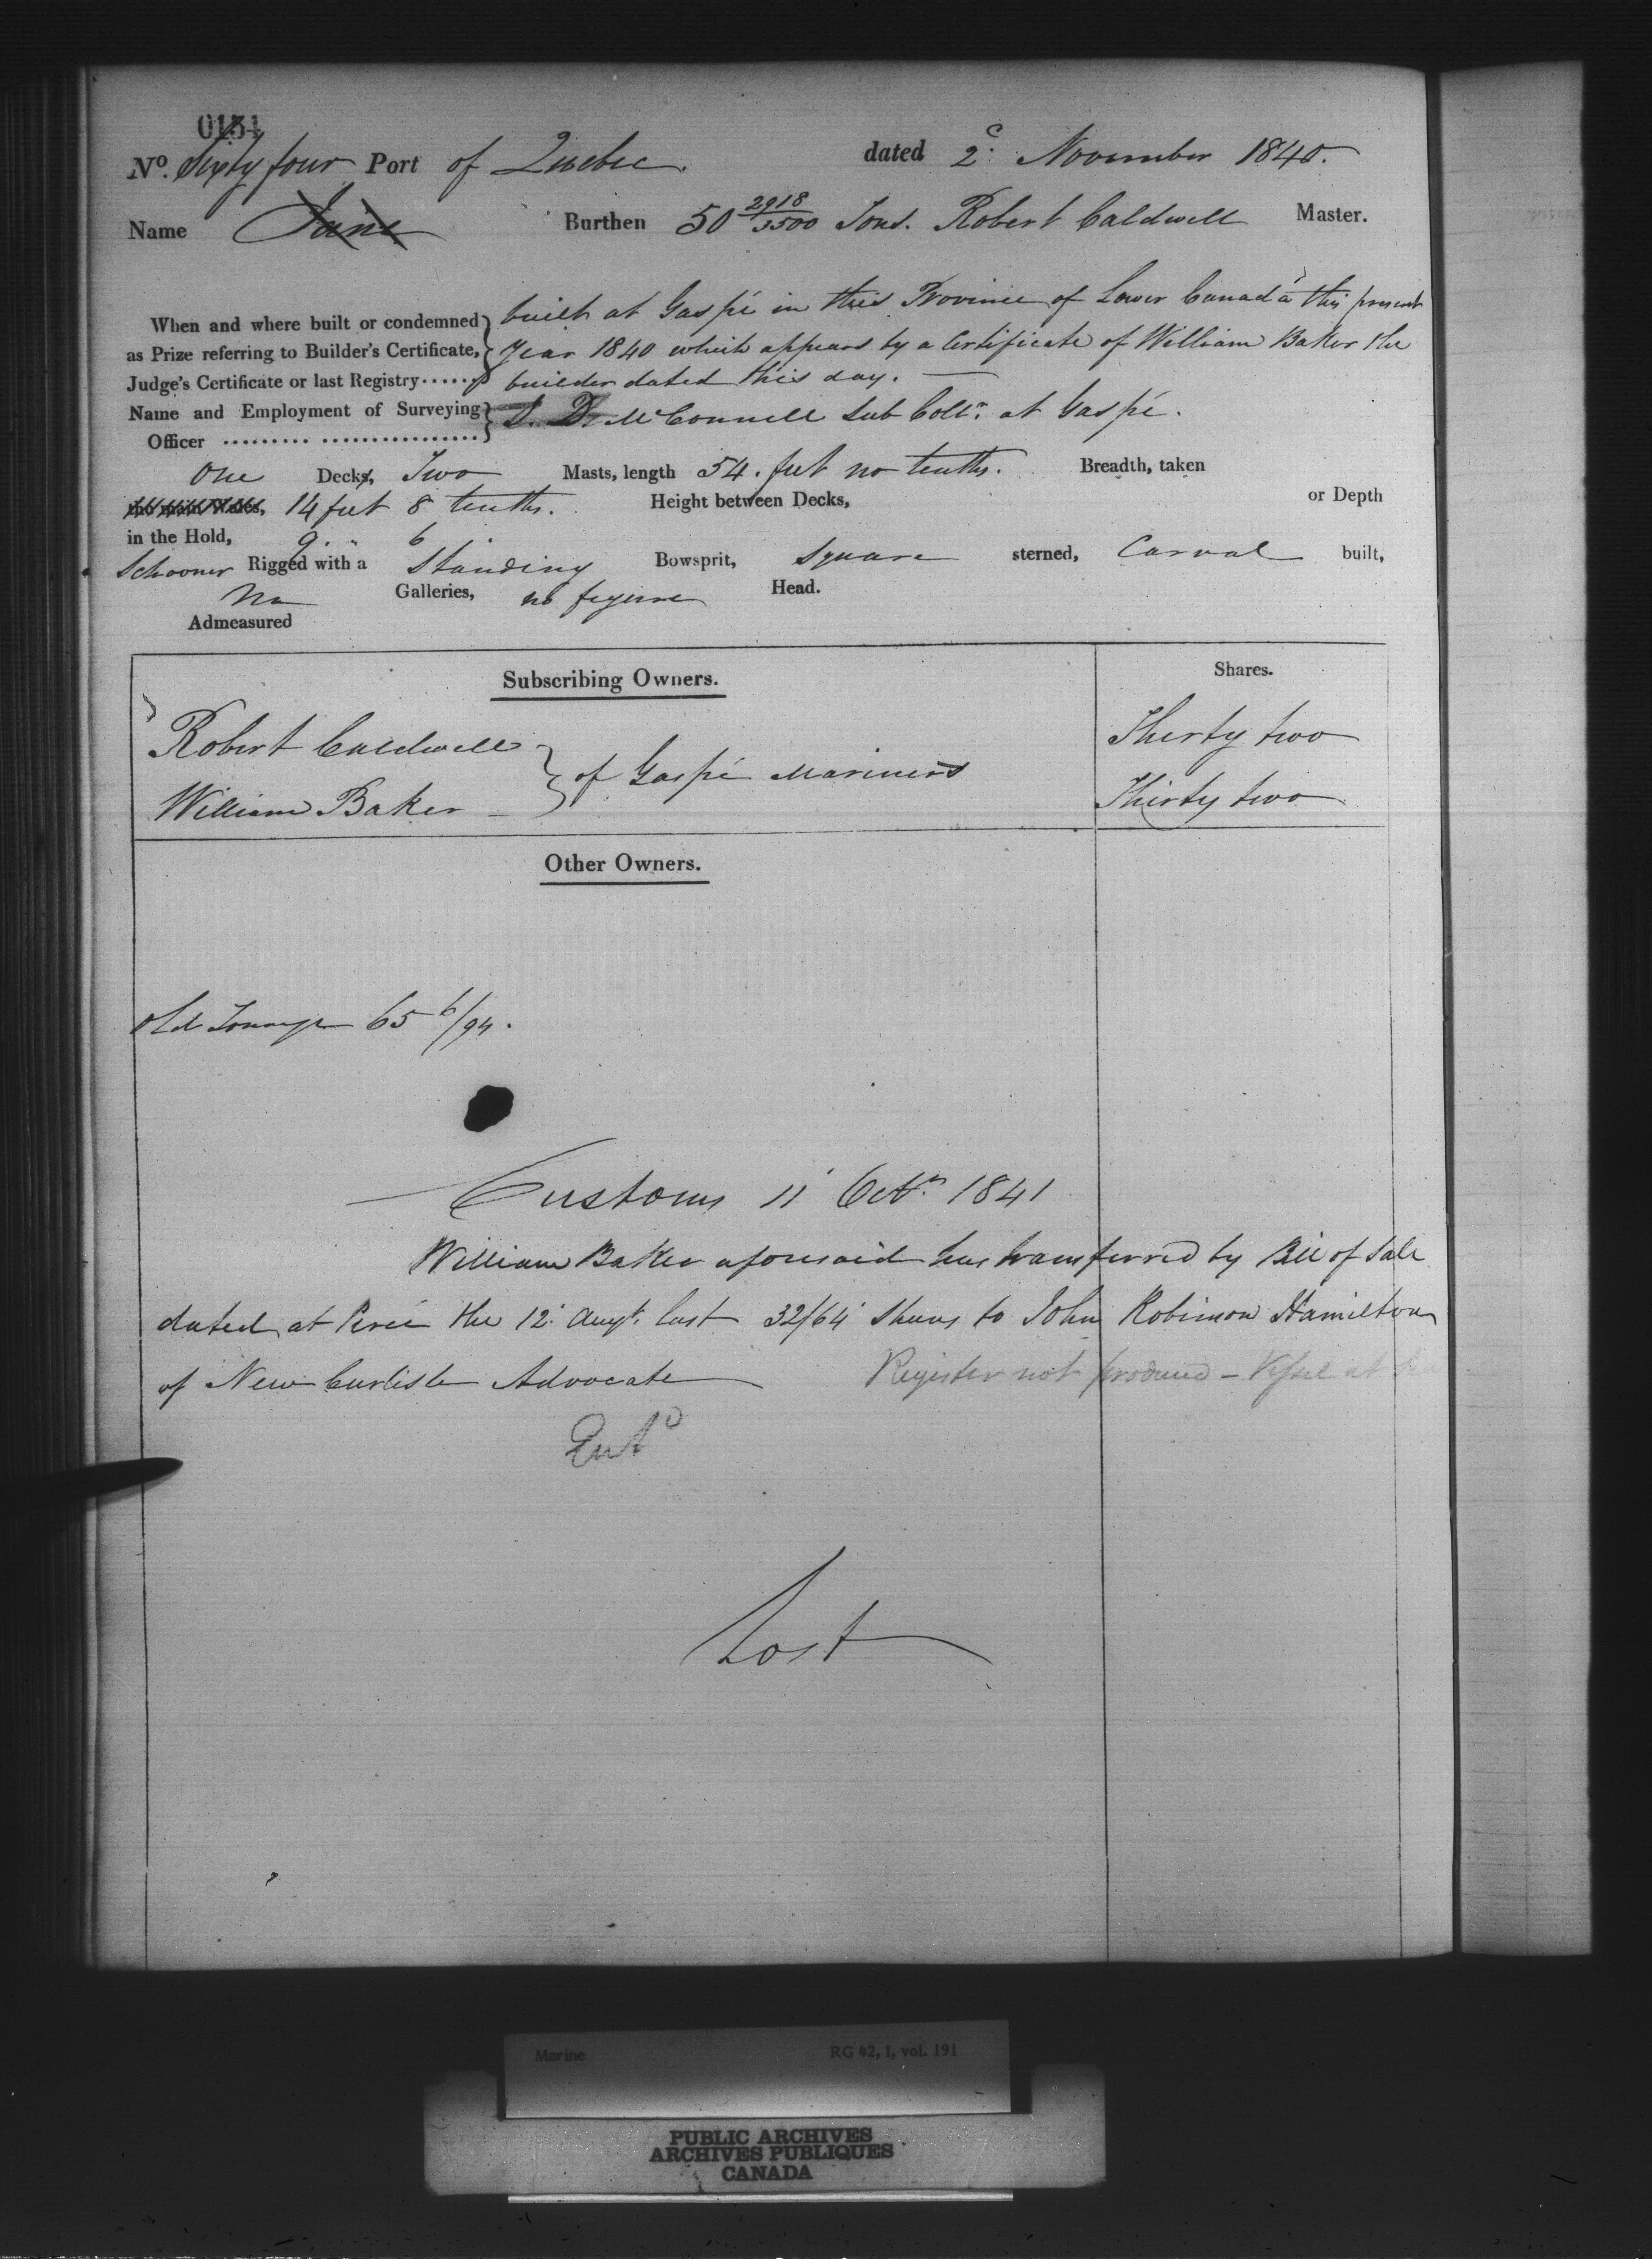 0151
No. Sixty four Port of Quebec. dated 2d November 1840.
Name Jane Burthen 50 2918/3500 Tons. Robert Caldwell Master.
When and where built or condemned as Prize referring to Builder's Certificate, Judge's Certificate or last Registry
built at Gaspé in this Province of Lower Canada this present
Year 1840 which appears by a Certificate of William Baker the
builder dated this day.
Name and Employment of Surveying Officer
McConnell Sub Collr. at Gaspé.
One Decks, Two Masts, length 54. feet no tenths. Breadth, taken
14 feet 8 tenths. Height between Decks, or Depth
in the Hold, 9 " 6
Schooner Rigged with a Standing Bowsprit, Square sterned, Carval built,
No Galleries, no figure Head.
Admeasured
Subscribing Owners. Shares.
Robert Caldwell Thirty two
of Gaspé Mariners
William Baker Thirty two
Other Owners.
Old Tonnage 65 6/94.
Customs 11 Octr. 1841
William Baker aforesaid has transferred by Bill of Sale
dated at Percé the 12 Augt. last 32/64 Shares to John Robinson Hamilton
of New Carlisle Advocate Register not produced - Vessel at Sea
Entd
Lost
Marine RG 42, I, vol. 191
PUBLIC ARCHIVES
ARCHIVES PUBLIQUES
CANADA